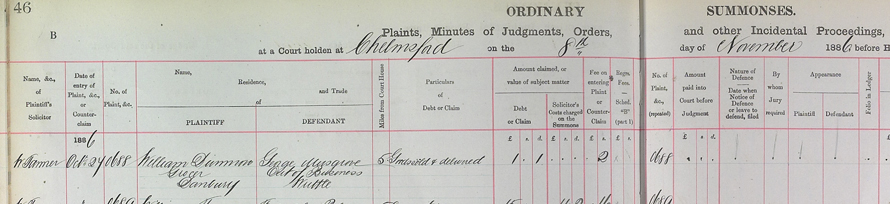 46
ORDINARY SUMMONSES.
B
Plaints, Minutes of Judgments, Orders, and other Incidental Proceedings,
at a Court holden at Chelmsford on the 8th day of November 1886 before H
Name, &c., of Plaintiff's Solicitor
Date of entry of Plaint, &c., or Counter-claim
No. of Plaint, &c.
Name, Residence, and Trade of
PLAINTIFF
DEFENDANT
Miles from Court House
Particulars of Debt or Claim
Amount claimed, or value of subject matter
Debt or Claim
Solicitor's Costs charged on the Summons
Fee on entering Plaint or Counter-Claim
Regr. Fees. — Sched. "B" (part 1)
No. of Plaint, &c., (repeated)
Amount paid into Court before Judgment
Nature of Defence
Date when Notice of Defence or leave to defend, filed
By whom Jury required
Appearance
Plaintiff
Defendant
Folio in Ledger
1886
£ s. d. £ s. d.
Oct 27 0688 William George Musgrove 5 Goods sold & delivered 1 . 1 2 0688
Grocer Out of Business
Danbury Writtle